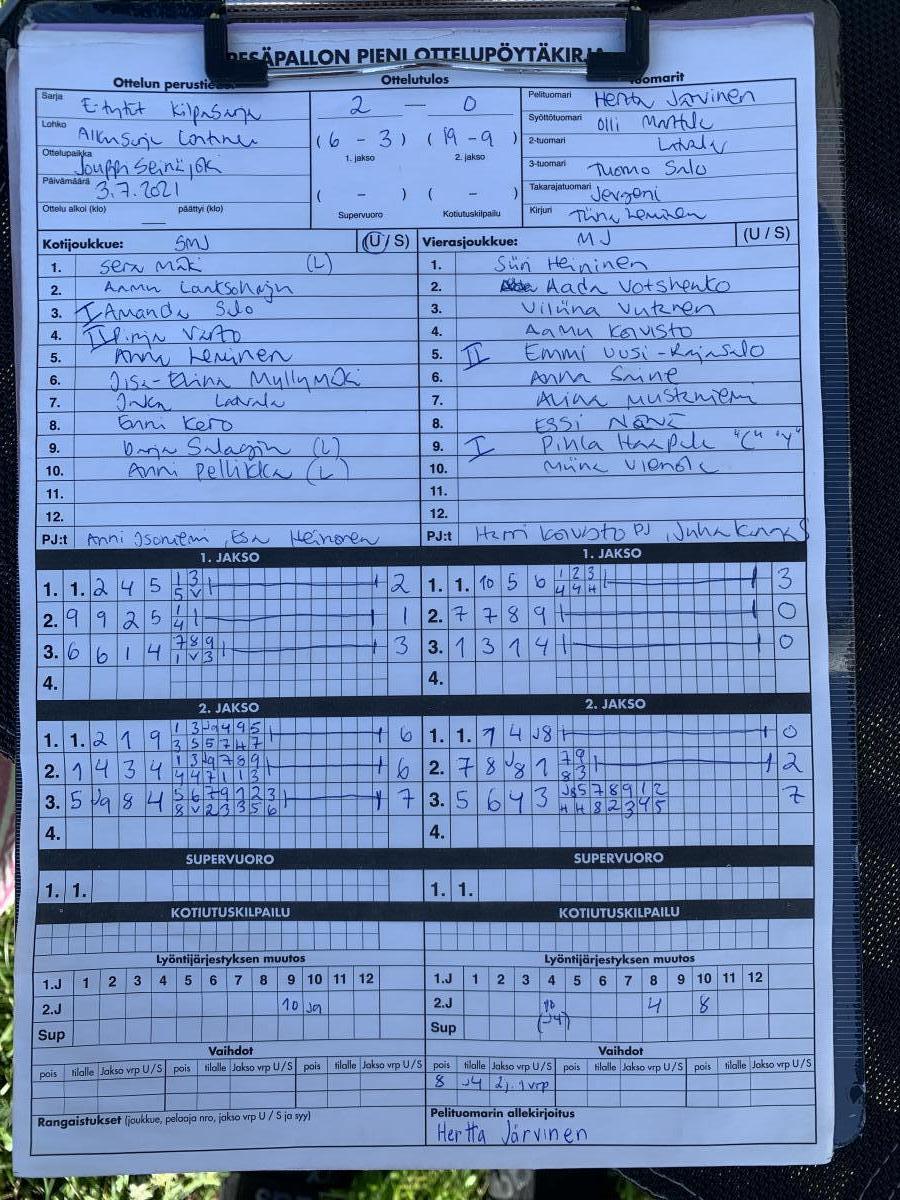 PESÄPALLON PIENI OTTELUPÖYTÄKIRJA
Ottelun perustiedot
Ottelutulos
Tuomarit
Sarja E-tytöt Kilpasarja
Lohko Alkusarja
Ottelupaikka Jouppi Seinäjoki
Päivämäärä 3.7.2021
Ottelu alkoi (klo) päättyi (klo)
2 — 0
(6 - 3) (19 - 9)
1. jakso 2. jakso
( - ) ( - )
Supervuoro Kotiutuskilpailu
Pelituomari Hertta Järvinen
Syöttötuomari Olli Mattila
2-tuomari Latvala
3-tuomari Tuomo Salo
Takarajatuomari Jevgeni
Kirjuri Tiina Leminen
Kotijoukkue: SMJ (U / S)
1. Sera Mäki (L)
2. Aamu
3. I Amanda Salo
4. II Pinja Värtö
5. Anna Leminen
6. Iisa-Elina Myllymäki
7. Inka Latvala
8. Enni Kero
9. Darja (L)
10. Anni Pellikka (L)
11.
12.
PJ:t Anni Isoniemi, Esa Heinonen
Vierasjoukkue: MJ (U / S)
1. Siiri Heininen
2. Aada Votshenko
3. Viliina Vutanen
4. Aamu Koivisto
5. II Emmi Uusi-Rajasalo
6. Anna Saine
7. Alina Mustaniemi
8. Essi
9. I Pihla Haapala "C" "Y"
10. Miina Vienola
11.
12.
PJ:t Harri Koivisto PJ, Juha
1. JAKSO
1. 1. 2 4 5 1 3 2
5 V
2. 9 9 2 5 1 1
4
3. 6 6 1 4 7 8 9 3
1 V 3
4.
2. JAKSO
1. 1. 2 1 9 1 3 J9 4 9 5 6
3 5 5 7 H 7
2. 1 4 3 4 1 3 J9 7 8 9 6
4 4 7 1 1 3
3. 5 J9 8 4 5 6 7 9 1 2 3 7
8 V 2 3 3 5 6
4.
SUPERVUORO
1. 1.
KOTIUTUSKILPAILU
1. JAKSO
1. 1. 10 5 6 1 2 3 3
4 4 H
2. 7 7 8 9 0
3. 1 3 1 4 0
4.
2. JAKSO
1. 1. 7 4 J8 0
2. 7 8 J8 1 7 9 2
8 3
3. 5 6 4 3 J8 5 7 8 9 1 2 7
H H 8 2 3 4 5
4.
SUPERVUORO
1. 1.
KOTIUTUSKILPAILU
Lyöntijärjestyksen muutos
1.J 1 2 3 4 5 6 7 8 9 10 11 12
2.J 10 J9
Sup
Lyöntijärjestyksen muutos
1.J 1 2 3 4 5 6 7 8 9 10 11 12
2.J 10 4 8
Sup (J4)
Vaihdot
pois tilalle Jakso vrp U/S pois tilalle Jakso vrp U/S pois tilalle Jakso vrp U/S
Vaihdot
pois tilalle Jakso vrp U/S pois tilalle Jakso vrp U/S pois tilalle Jakso vrp U/S
8 J4 2j. 1vrp
Rangaistukset (joukkue, pelaaja nro, jakso vrp U / S ja syy)
Pelituomarin allekirjoitus
Hertta Järvinen